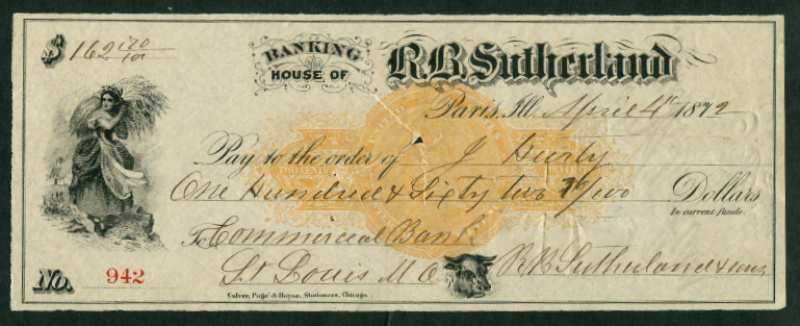 $ 162 70/100
BANKING
HOUSE OF
R.B. Sutherland
Paris, Ill. April 4th 1872
Pay to the order of J
One Hundred & Sixty two 70/100 Dollars
In current funds.
TWO CENTS
To Commercial Bank
St Louis Mo
R B Sutherland & sons
No. 942
Culver, Page & Hoyne, Stationers, Chicago.